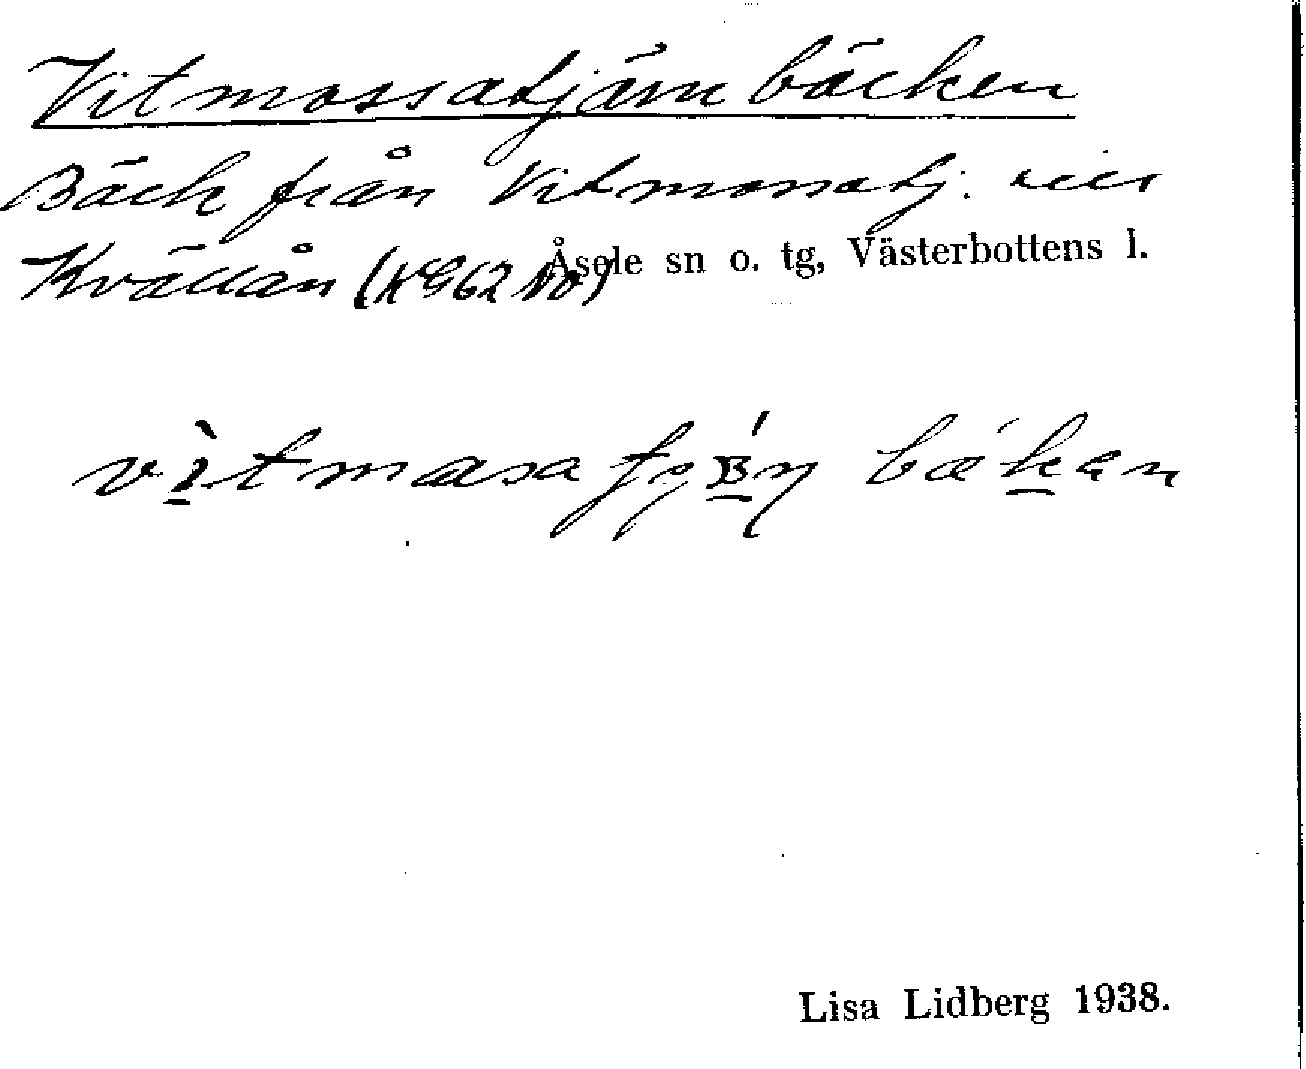 Vitmossatjärnbäcken
Bäck från Vitmossatj. till
Kvällån (KG62 NO)
Åsele sn o. tg, Västerbottens l.
Lisa Lidberg 1938.